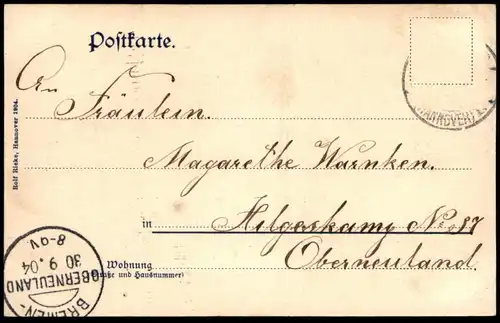 Postkarte.
An
Fräulein.
Magarethe Warnken.
in Hilgeskamp No 87
Oberneuland.
Wohnung
(Straße und Hausnummer)
Rolf Rieke, Hannover 1904.
HANNOVER
BREMEN-
OBERNEULAND
30 9.04
8-9V.